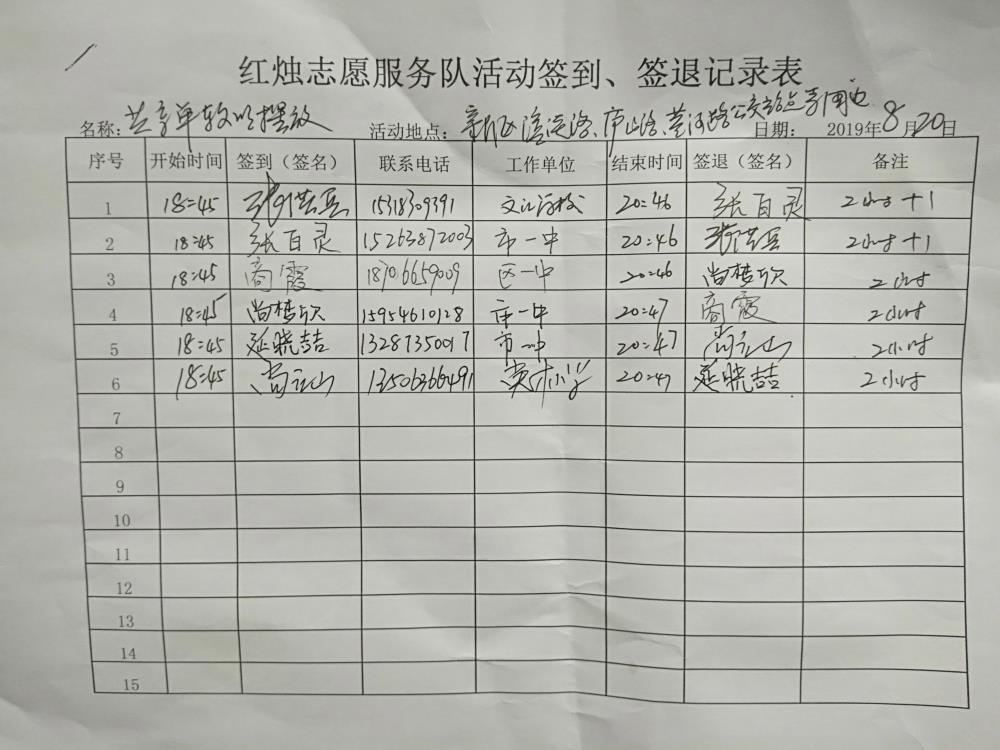 红烛志愿服务队活动签到、签退记录表
名称：共享单车摆放 活动地点：庐山路、公交站点周边 日期： 2019年8月20日
序号 开始时间 签到（签名） 联系电话 工作单位 结束时间 签退（签名） 备注
1 18:45 15318309391 20:46 张百灵 2小时+1
2 18:45 张百灵 15263872003 市一中 20:46 2小时+1
3 18:45 商霞 18706659009 区一中 20:46 尚梦欣 2小时
4 18:45 尚梦欣 15954610128 市一中 20:47 商霞 2小时
5 18:45 延晓喆 13287350017 市一中 20:47 尚立山 2小时
6 18:45 尚立山 13506366491 英才小学 20:47 延晓喆 2小时
7
8
9
10
11
12
13
14
15